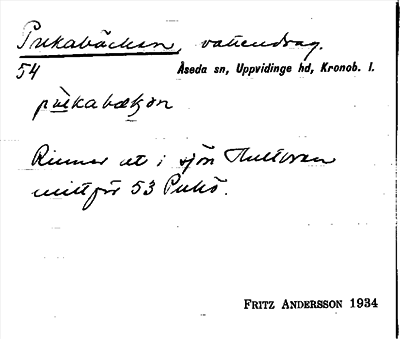 Pukabäcken, vattendrag.
54 Åseda sn, Uppvidinge hd, Kronob. l.
Rinner ut i sjön Hultbren
mitt för 53 Pukö.
FRITZ ANDERSSON 1934